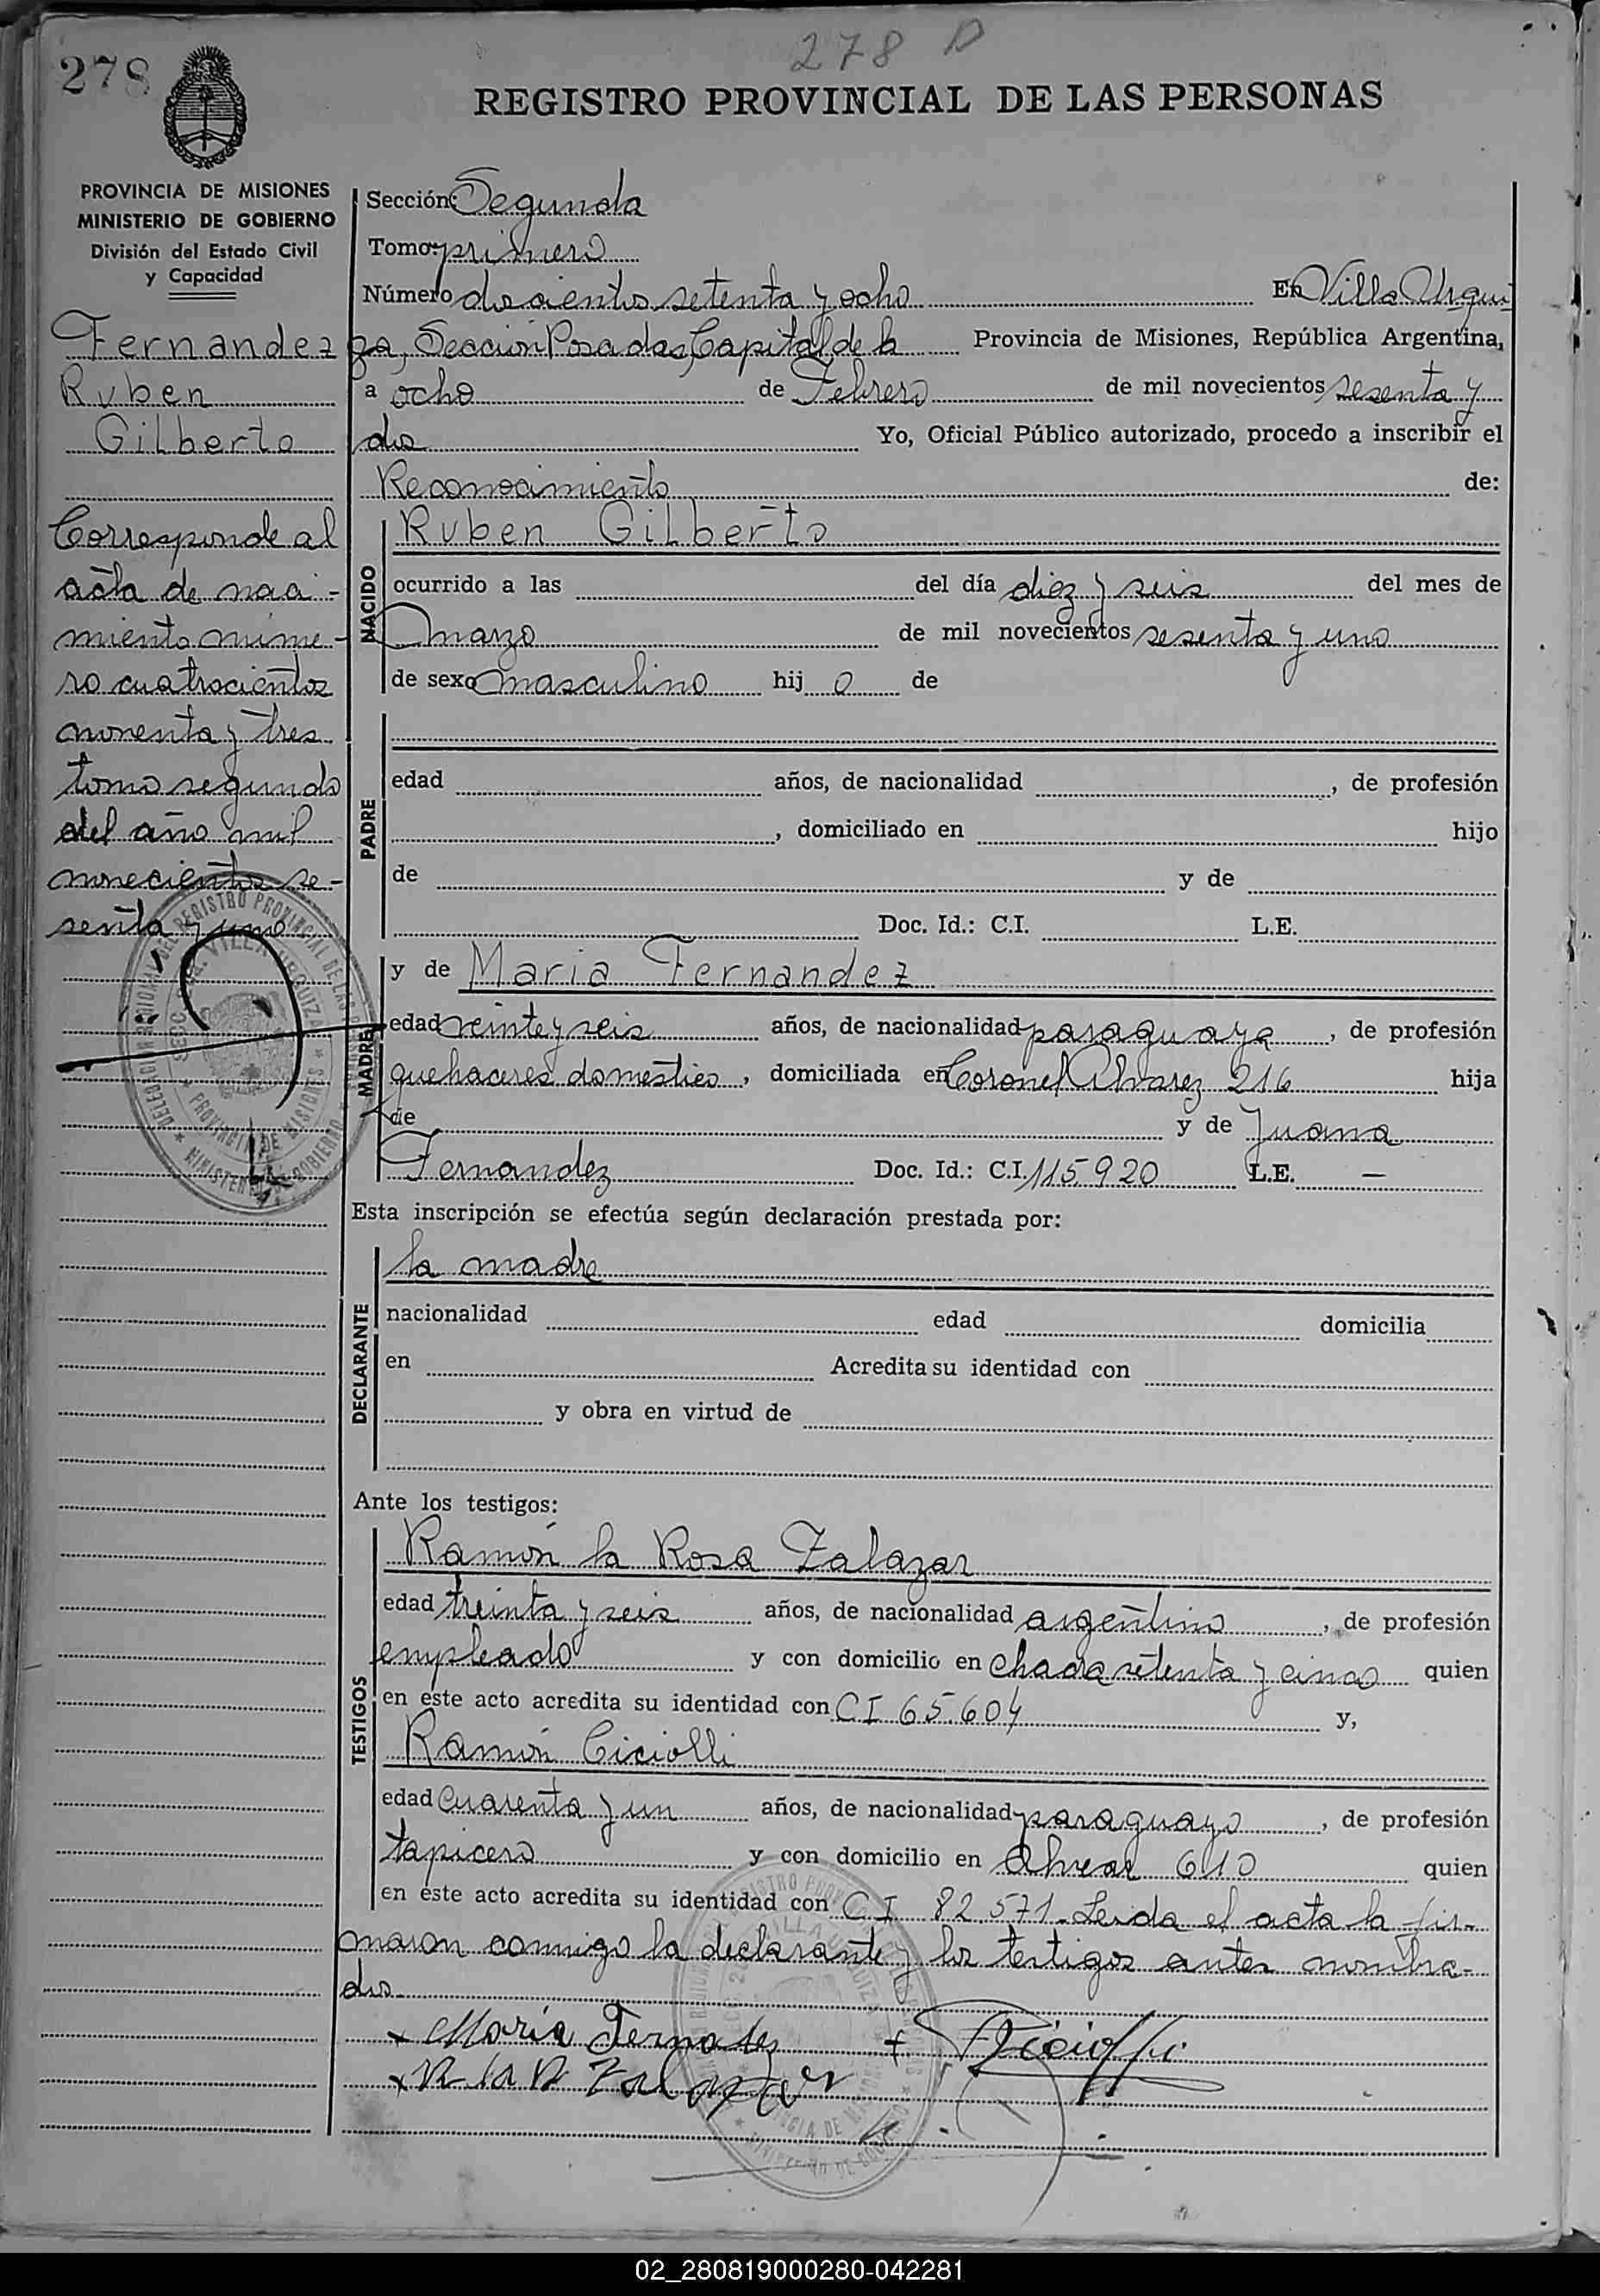 278 D
278
REGISTRO PROVINCIAL DE LAS PERSONAS
PROVINCIA DE MISIONES
MINISTERIO DE GOBIERNO
División del Estado Civil
y Capacidad
Fernandez
Ruben
Gilberto
Corresponde al
acta de naci-
miento núme-
ro cuatrocientos
noventa y tres
tomo segundo
del año mil
novecientos se-
senta y uno
Sección: Segunda
Tomo: primero
Número doscientos setenta y ocho En Villa Urqui
za, Sección Posadas, Capital de la Provincia de Misiones, República Argentina,
a ocho de Febrero de mil novecientos sesenta y
dos Yo, Oficial Público autorizado, procedo a inscribir el
Reconocimiento de:
NACIDO
Ruben Gilberto
ocurrido a las del día diez y seis del mes de
marzo de mil novecientos sesenta y uno
de sexo masculino hij o de
PADRE
edad años, de nacionalidad , de profesión
, domiciliado en hijo
de y de
Doc. Id.: C.I. L.E.
MADRE
y de Maria Fernandez
edad veinte y seis años, de nacionalidad paraguaya , de profesión
quehaceres domestico , domiciliada en Coronel Alvarez 216 hija
de y de Juana
Fernandez Doc. Id.: C.I. 115.920 L.E. —
Esta inscripción se efectúa según declaración prestada por:
DECLARANTE
la madre
nacionalidad edad domicilia
en Acredita su identidad con
y obra en virtud de
Ante los testigos:
TESTIGOS
Ramón la Rosa Zalazar
edad treinta y seis años, de nacionalidad argentino , de profesión
empleado y con domicilio en chacra setenta y cinco quien
en este acto acredita su identidad con CI 65.604 y,
Ramón Ciciolli
edad cuarenta y un años, de nacionalidad paraguayo , de profesión
tapicero y con domicilio en Alvear 610 quien
en este acto acredita su identidad con CI 82.571. Leida el acta la fir-
maron conmigo la declarante y los testigos antes nombra-
dos.
x María Fernandez
x R la R Zalazar
02_280819000280-042281